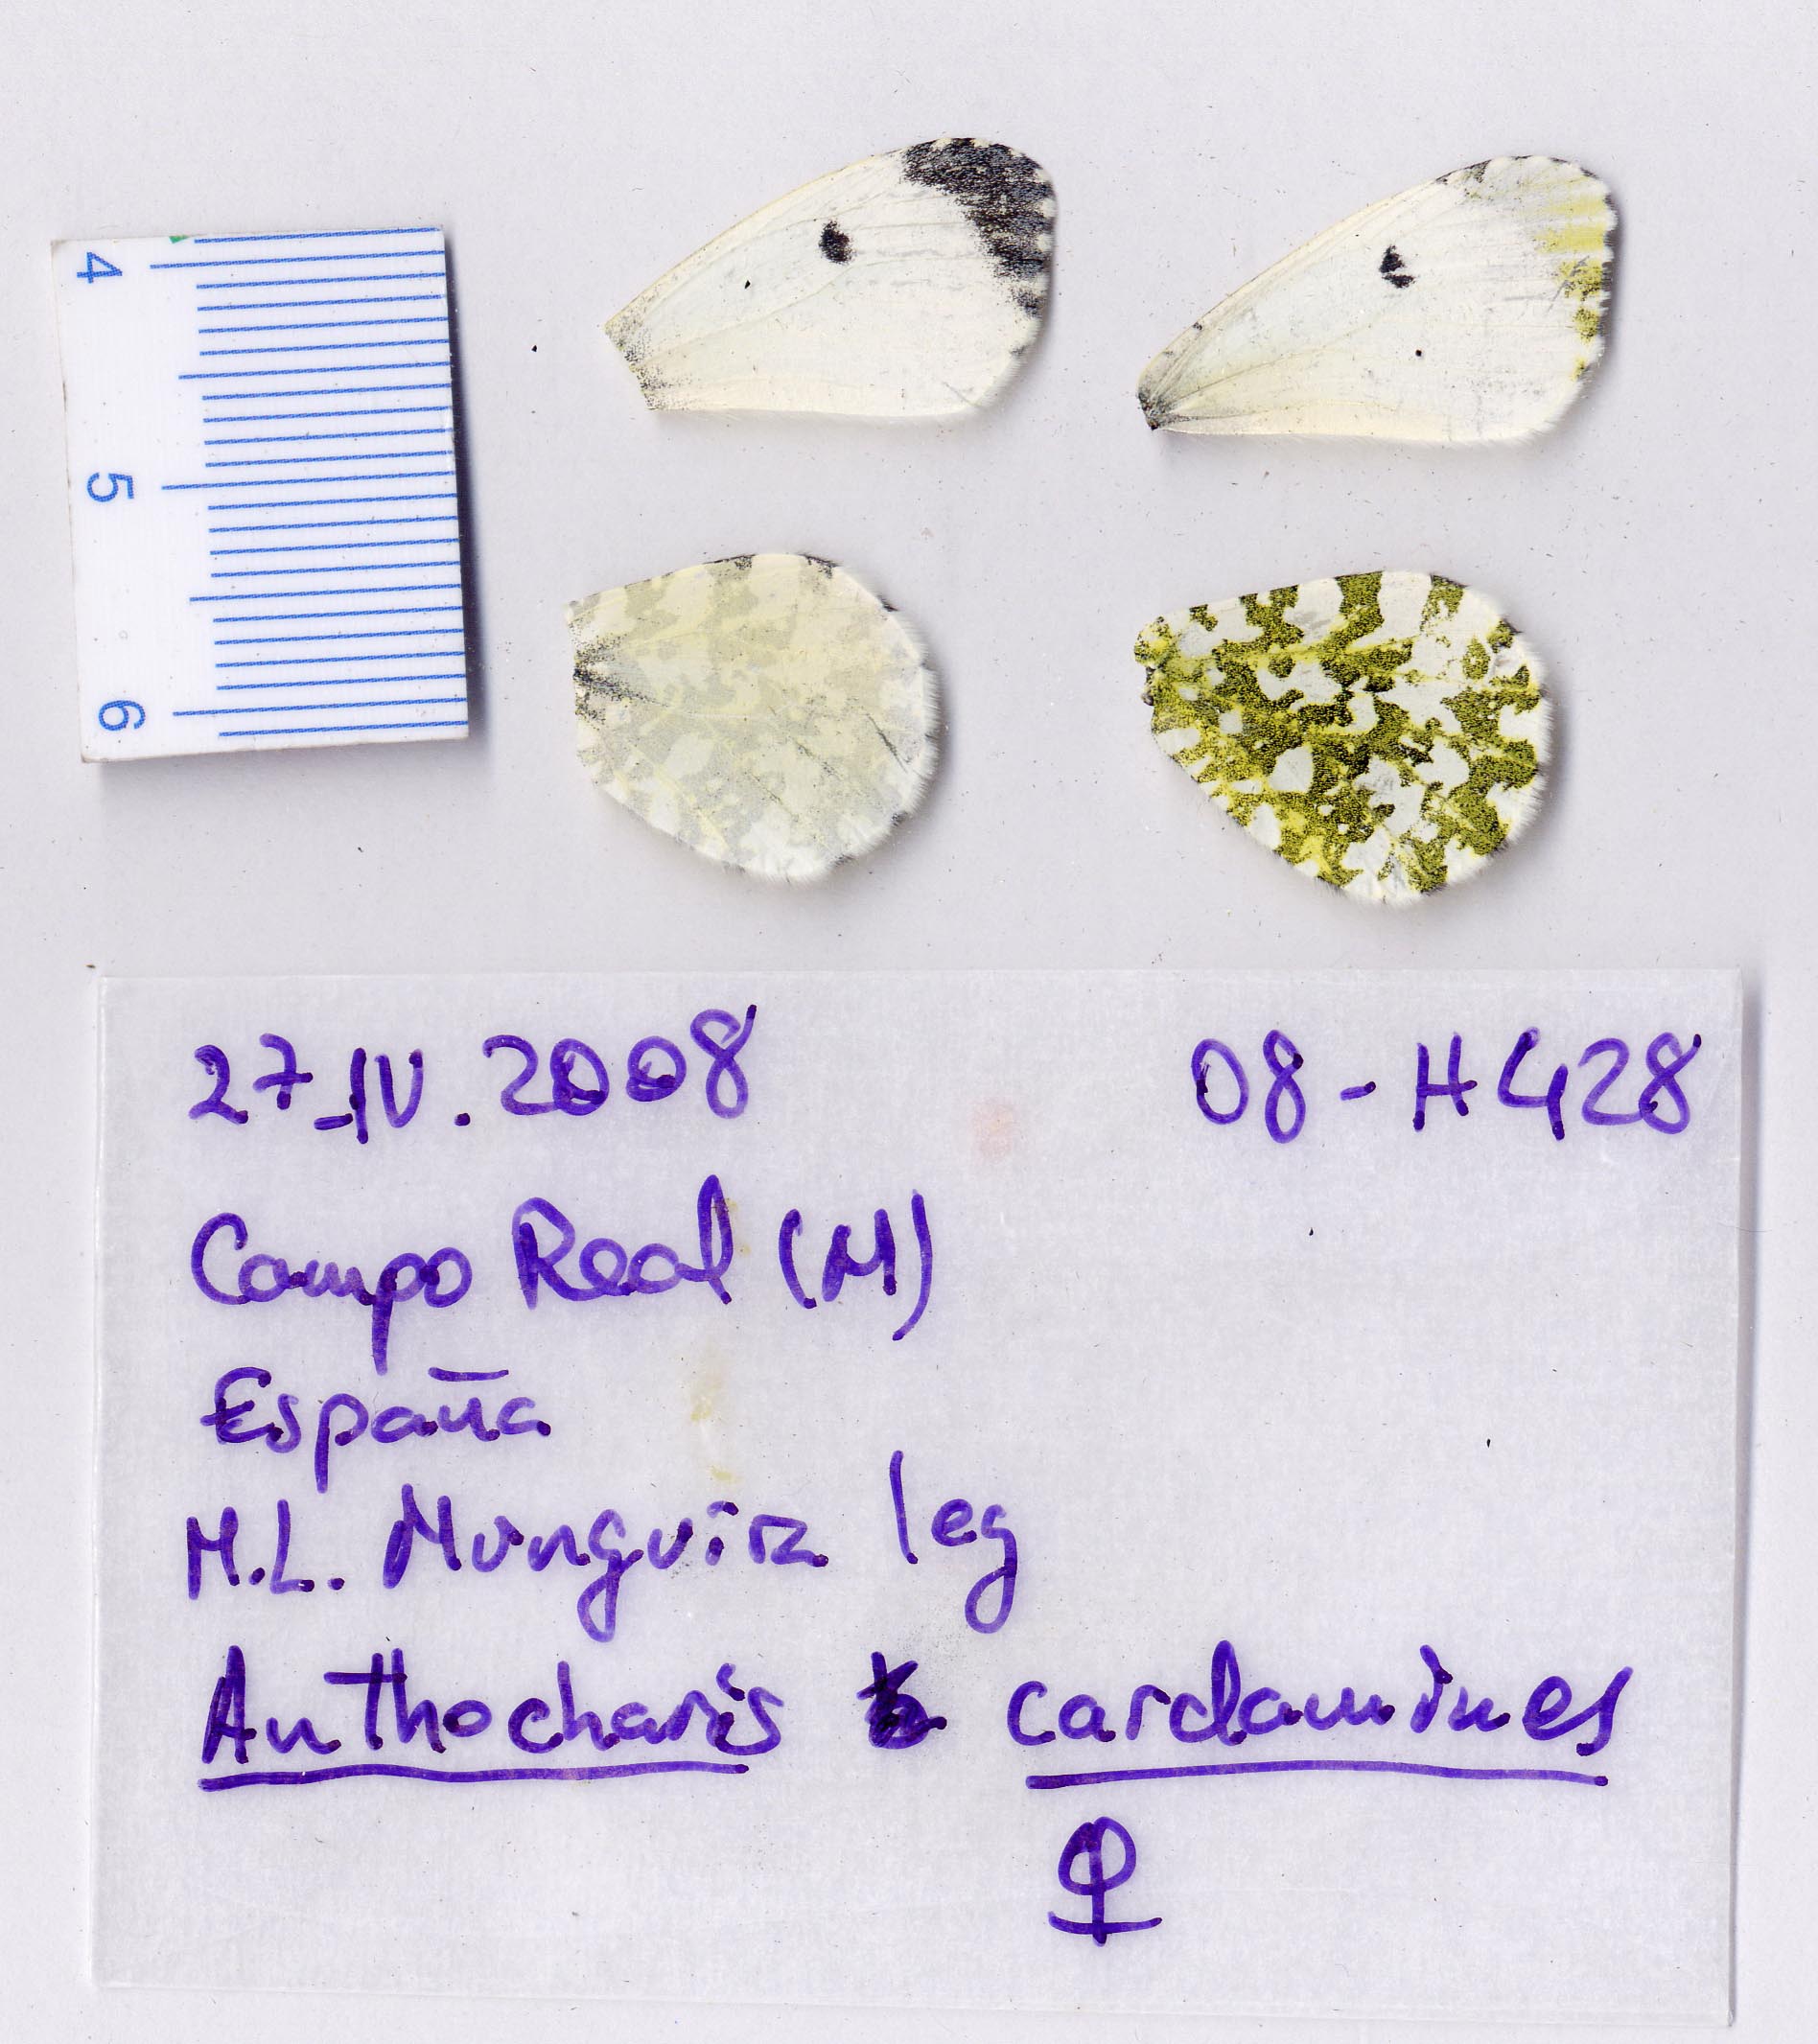 4
5
6
27-IV.2008 08-H428
Campo Real (M)
España
M.L. Munguira leg
Anthocharis cardamines
♀